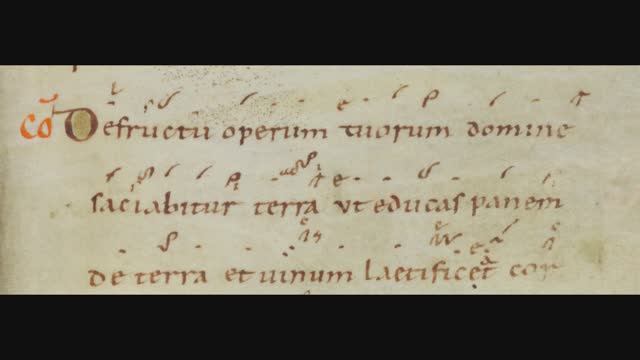 CŌ Defructu operum tuorum domine
saciabitur terra ut educas panem
de terra et uinum laetificet cor